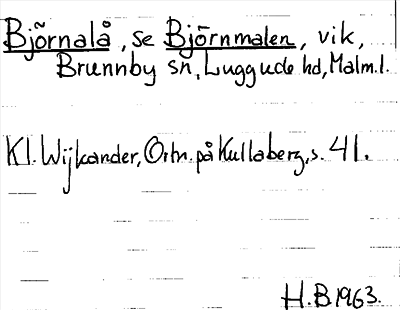 Björnalå, se Björnmalen, vik,
Brunnby sn, Luggude hd, Malm.l.
Kl. Wijkander, Ortn. på Kullaberg, s. 41.
H.B. 1963.